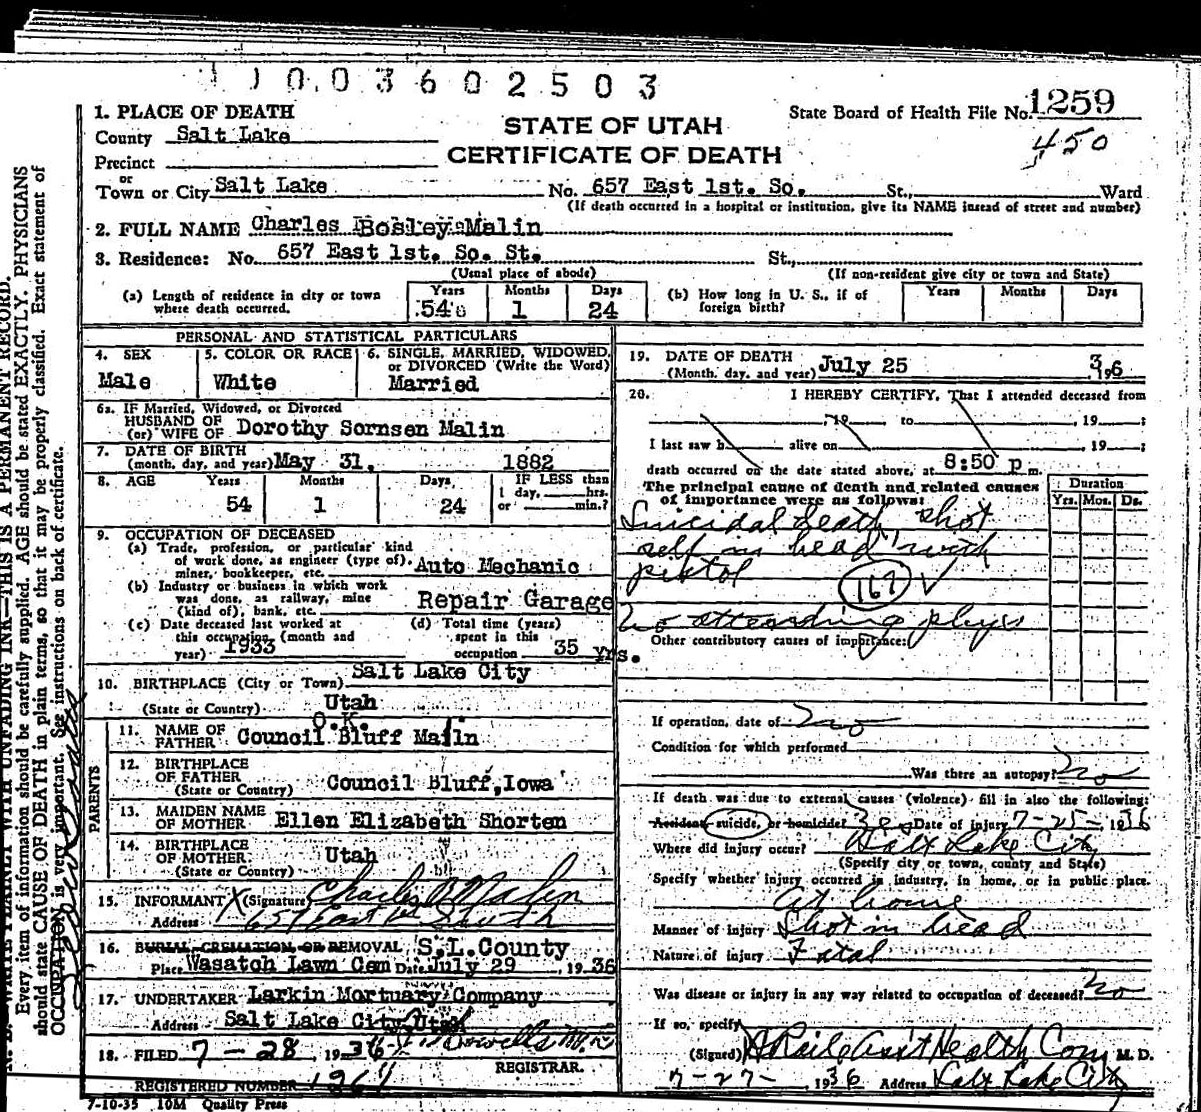 1003602503
1. PLACE OF DEATH
State Board of Health File No. 1259
450
STATE OF UTAH
CERTIFICATE OF DEATH
County Salt Lake
Precinct
or
Town or City Salt Lake No. 657 East 1st. So. St., Ward
(If death occurred in a hospital or institution, give its NAME instead of street and number)
2. FULL NAME Charles Bosley Malin
3. Residence: No. 657 East 1st. So. St. St.,
(Usual place of abode) (If non-resident give city or town and State)
(a) Length of residence in city or town where death occurred. Years 54 Months 1 Days 24
(b) How long in U. S., if of foreign birth? Years Months Days
PERSONAL AND STATISTICAL PARTICULARS
4. SEX Male
5. COLOR OR RACE White
6. SINGLE, MARRIED, WIDOWED, or DIVORCED (Write the Word) Married
6a. IF Married, Widowed, or Divorced
HUSBAND OF
(or) WIFE OF Dorothy Sornsen Malin
7. DATE OF BIRTH
(month, day, and year) May 31, 1882
8. AGE Years 54 Months 1 Days 24 IF LESS than 1 day, hrs. or min.?
9. OCCUPATION OF DECEASED
(a) Trade, profession, or particular kind
of work done, as engineer (type of),
miner, bookkeeper, etc. Auto Mechanic
(b) Industry or business in which work
was done, as railway, mine
(kind of), bank, etc. Repair Garage
(c) Date deceased last worked at
this occupation (month and
year) 1933
(d) Total time (years)
spent in this
occupation 35 yrs.
10. BIRTHPLACE (City or Town) Salt Lake City
(State or Country) Utah
PARENTS
O.K.
11. NAME OF FATHER Council Bluff Malin
12. BIRTHPLACE
OF FATHER
(State or Country) Council Bluff, Iowa
13. MAIDEN NAME
OF MOTHER Ellen Elizabeth Shorten
14. BIRTHPLACE
OF MOTHER
(State or Country) Utah
15. INFORMANT X (Signature) Charles B Malin
Address 657 East 1st South
16. BURIAL, CREMATION OR REMOVAL S.L.County
Place Wasatch Lawn Cem Date July 29, 1936
17. UNDERTAKER Larkin Mortuary Company
Address Salt Lake City, Utah
18. FILED 7-28, 1936
REGISTRAR.
REGISTERED NUMBER
7-10-35 10M Quality Press
19. DATE OF DEATH
(Month, day, and year) July 25 36
20. I HEREBY CERTIFY, That I attended deceased from
, 19 , to , 19 ;
I last saw h alive on , 19 ;
death occurred on the date stated above, at 8:50 p m.
The principal cause of death and related causes
of importance were as follows:
Duration
Yrs. Mos. Ds.
Suicidal death, shot
self in head with
pistol 167
No attending phys
Other contributory causes of importance:
If operation, date of No
Condition for which performed
Was there an autopsy? No
If death was due to external causes (violence) fill in also the following:
Accident, suicide, or homicide? Date of injury 7-25-, 1936
Where did injury occur? Salt Lake City
(Specify city or town, county and State)
Specify whether injury occurred in industry, in home, or in public place.
At home
Manner of injury Shot in head
Nature of injury Fatal
Was disease or injury in any way related to occupation of deceased? No
If so, specify
(Signed) Health Com M. D.
7-27-, 1936 Address Salt Lake City
WRITE PLAINLY WITH UNFADING INK—THIS IS A PERMANENT RECORD.
Every item of information should be carefully supplied. AGE should be stated EXACTLY. PHYSICIANS
should state CAUSE OF DEATH in plain terms, so that it may be properly classified. Exact statement of
OCCUPATION is very important. See instructions on back of certificate.